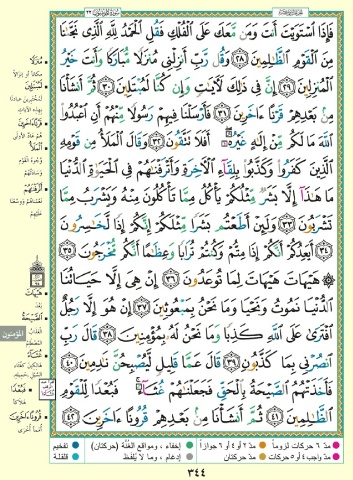 سورة المؤمنون ٢٣
فَإِذَا ٱسْتَوَيْتَ أَنتَ وَمَن مَّعَكَ عَلَى ٱلْفُلْكِ فَقُلِ ٱلْحَمْدُ لِلَّهِ ٱلَّذِى نَجَّىٰنَا
مِنَ ٱلْقَوْمِ ٱلظَّٰلِمِينَ ٢٨ وَقُل رَّبِّ أَنزِلْنِى مُنزَلًا مُّبَارَكًا وَأَنتَ خَيْرُ
ٱلْمُنزِلِينَ ٢٩ إِنَّ فِى ذَٰلِكَ لَءَايَٰتٍ وَإِن كُنَّا لَمُبْتَلِينَ ٣٠ ثُمَّ أَنشَأْنَا
مِنۢ بَعْدِهِمْ قَرْنًا ءَاخَرِينَ ٣١ فَأَرْسَلْنَا فِيهِمْ رَسُولًا مِّنْهُمْ أَنِ ٱعْبُدُوا۟
ٱللَّهَ مَا لَكُم مِّنْ إِلَٰهٍ غَيْرُهُۥٓ أَفَلَا تَتَّقُونَ ٣٢ وَقَالَ ٱلْمَلَأُ مِن قَوْمِهِ
ٱلَّذِينَ كَفَرُوا۟ وَكَذَّبُوا۟ بِلِقَآءِ ٱلْءَاخِرَةِ وَأَتْرَفْنَٰهُمْ فِى ٱلْحَيَوٰةِ ٱلدُّنْيَا
مَا هَٰذَآ إِلَّا بَشَرٌ مِّثْلُكُمْ يَأْكُلُ مِمَّا تَأْكُلُونَ مِنْهُ وَيَشْرَبُ مِمَّا
تَشْرَبُونَ ٣٣ وَلَئِنْ أَطَعْتُم بَشَرًا مِّثْلَكُمْ إِنَّكُمْ إِذًا لَّخَٰسِرُونَ
٣٤ أَيَعِدُكُمْ أَنَّكُمْ إِذَا مِتُّمْ وَكُنتُمْ تُرَابًا وَعِظَٰمًا أَنَّكُم مُّخْرَجُونَ ٣٥
هَيْهَاتَ هَيْهَاتَ لِمَا تُوعَدُونَ ٣٦ إِنْ هِىَ إِلَّا حَيَاتُنَا
ٱلدُّنْيَا نَمُوتُ وَنَحْيَا وَمَا نَحْنُ بِمَبْعُوثِينَ ٣٧ إِنْ هُوَ إِلَّا رَجُلٌ
ٱفْتَرَىٰ عَلَى ٱللَّهِ كَذِبًا وَمَا نَحْنُ لَهُۥ بِمُؤْمِنِينَ ٣٨ قَالَ رَبِّ
ٱنصُرْنِى بِمَا كَذَّبُونِ ٣٩ قَالَ عَمَّا قَلِيلٍ لَّيُصْبِحُنَّ نَٰدِمِينَ ٤٠
فَأَخَذَتْهُمُ ٱلصَّيْحَةُ بِٱلْحَقِّ فَجَعَلْنَٰهُمْ غُثَآءً فَبُعْدًا لِّلْقَوْمِ
ٱلظَّٰلِمِينَ ٤١ ثُمَّ أَنشَأْنَا مِنۢ بَعْدِهِمْ قُرُونًا ءَاخَرِينَ ٤٢
المؤمنون
مدّ ٦ حركات لزوماً مدّ ٢ أو ٤ أو ٦ جوازاً إخفاء، ومواقع الغُنَّة (حركتان) تفخيم
مدّ واجب ٤ أو ٥ حركات مدّ حركتان إدغام، وما لا يُلفَظ قلقلة
٣٤٤